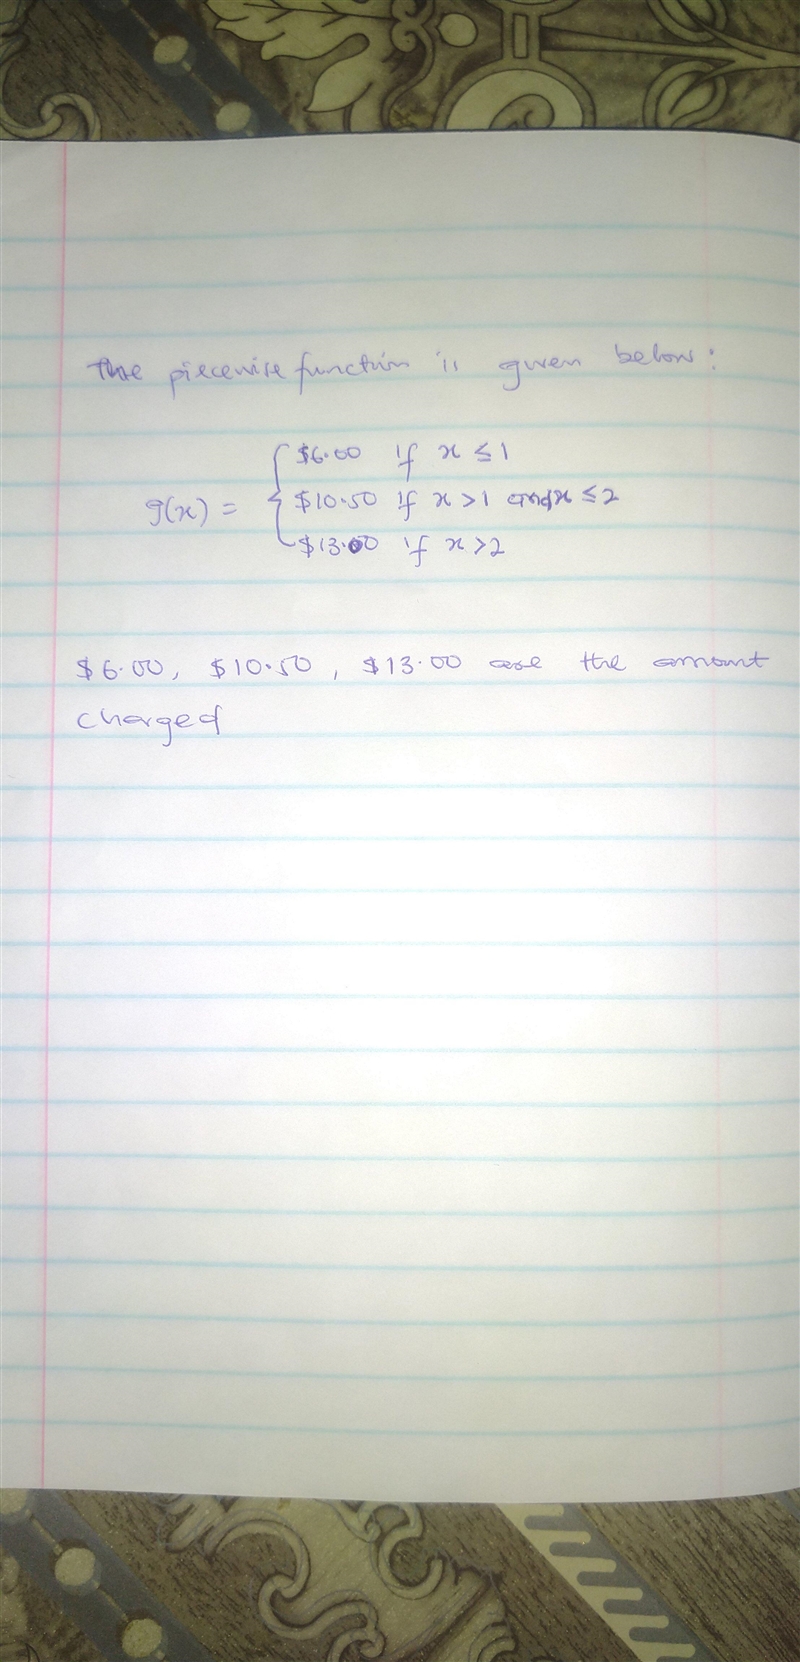 The piecewise function is given below:
$6.00 if x ≤ 1
g(x) = { $10.50 if x > 1 and x ≤ 2
$13.00 if x > 2
$6.00, $10.50, $13.00 are the amount
charged